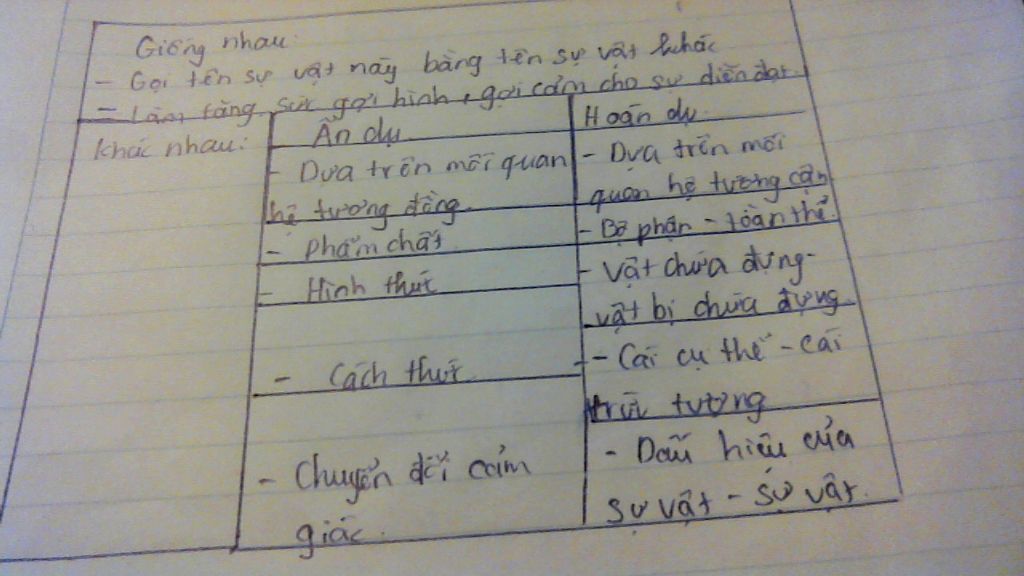 Giống nhau:
- Gọi tên sự vật này bằng tên sự vật khác
- Làm tăng sức gợi hình, gợi cảm cho sự diễn đạt.
Khác nhau:
Ẩn dụ
- Dựa trên mối quan
hệ tương đồng.
- Phẩm chất
- Hình thức
- Cách thức
- Chuyển đổi cảm
giác.
Hoán dụ.
- Dựa trên mối
quan hệ tương cận
- Bộ phận - toàn thể.
- Vật chứa đựng -
vật bị chứa đựng
- Cái cụ thể - cái
trừu tượng
- Dấu hiệu của
sự vật - sự vật.